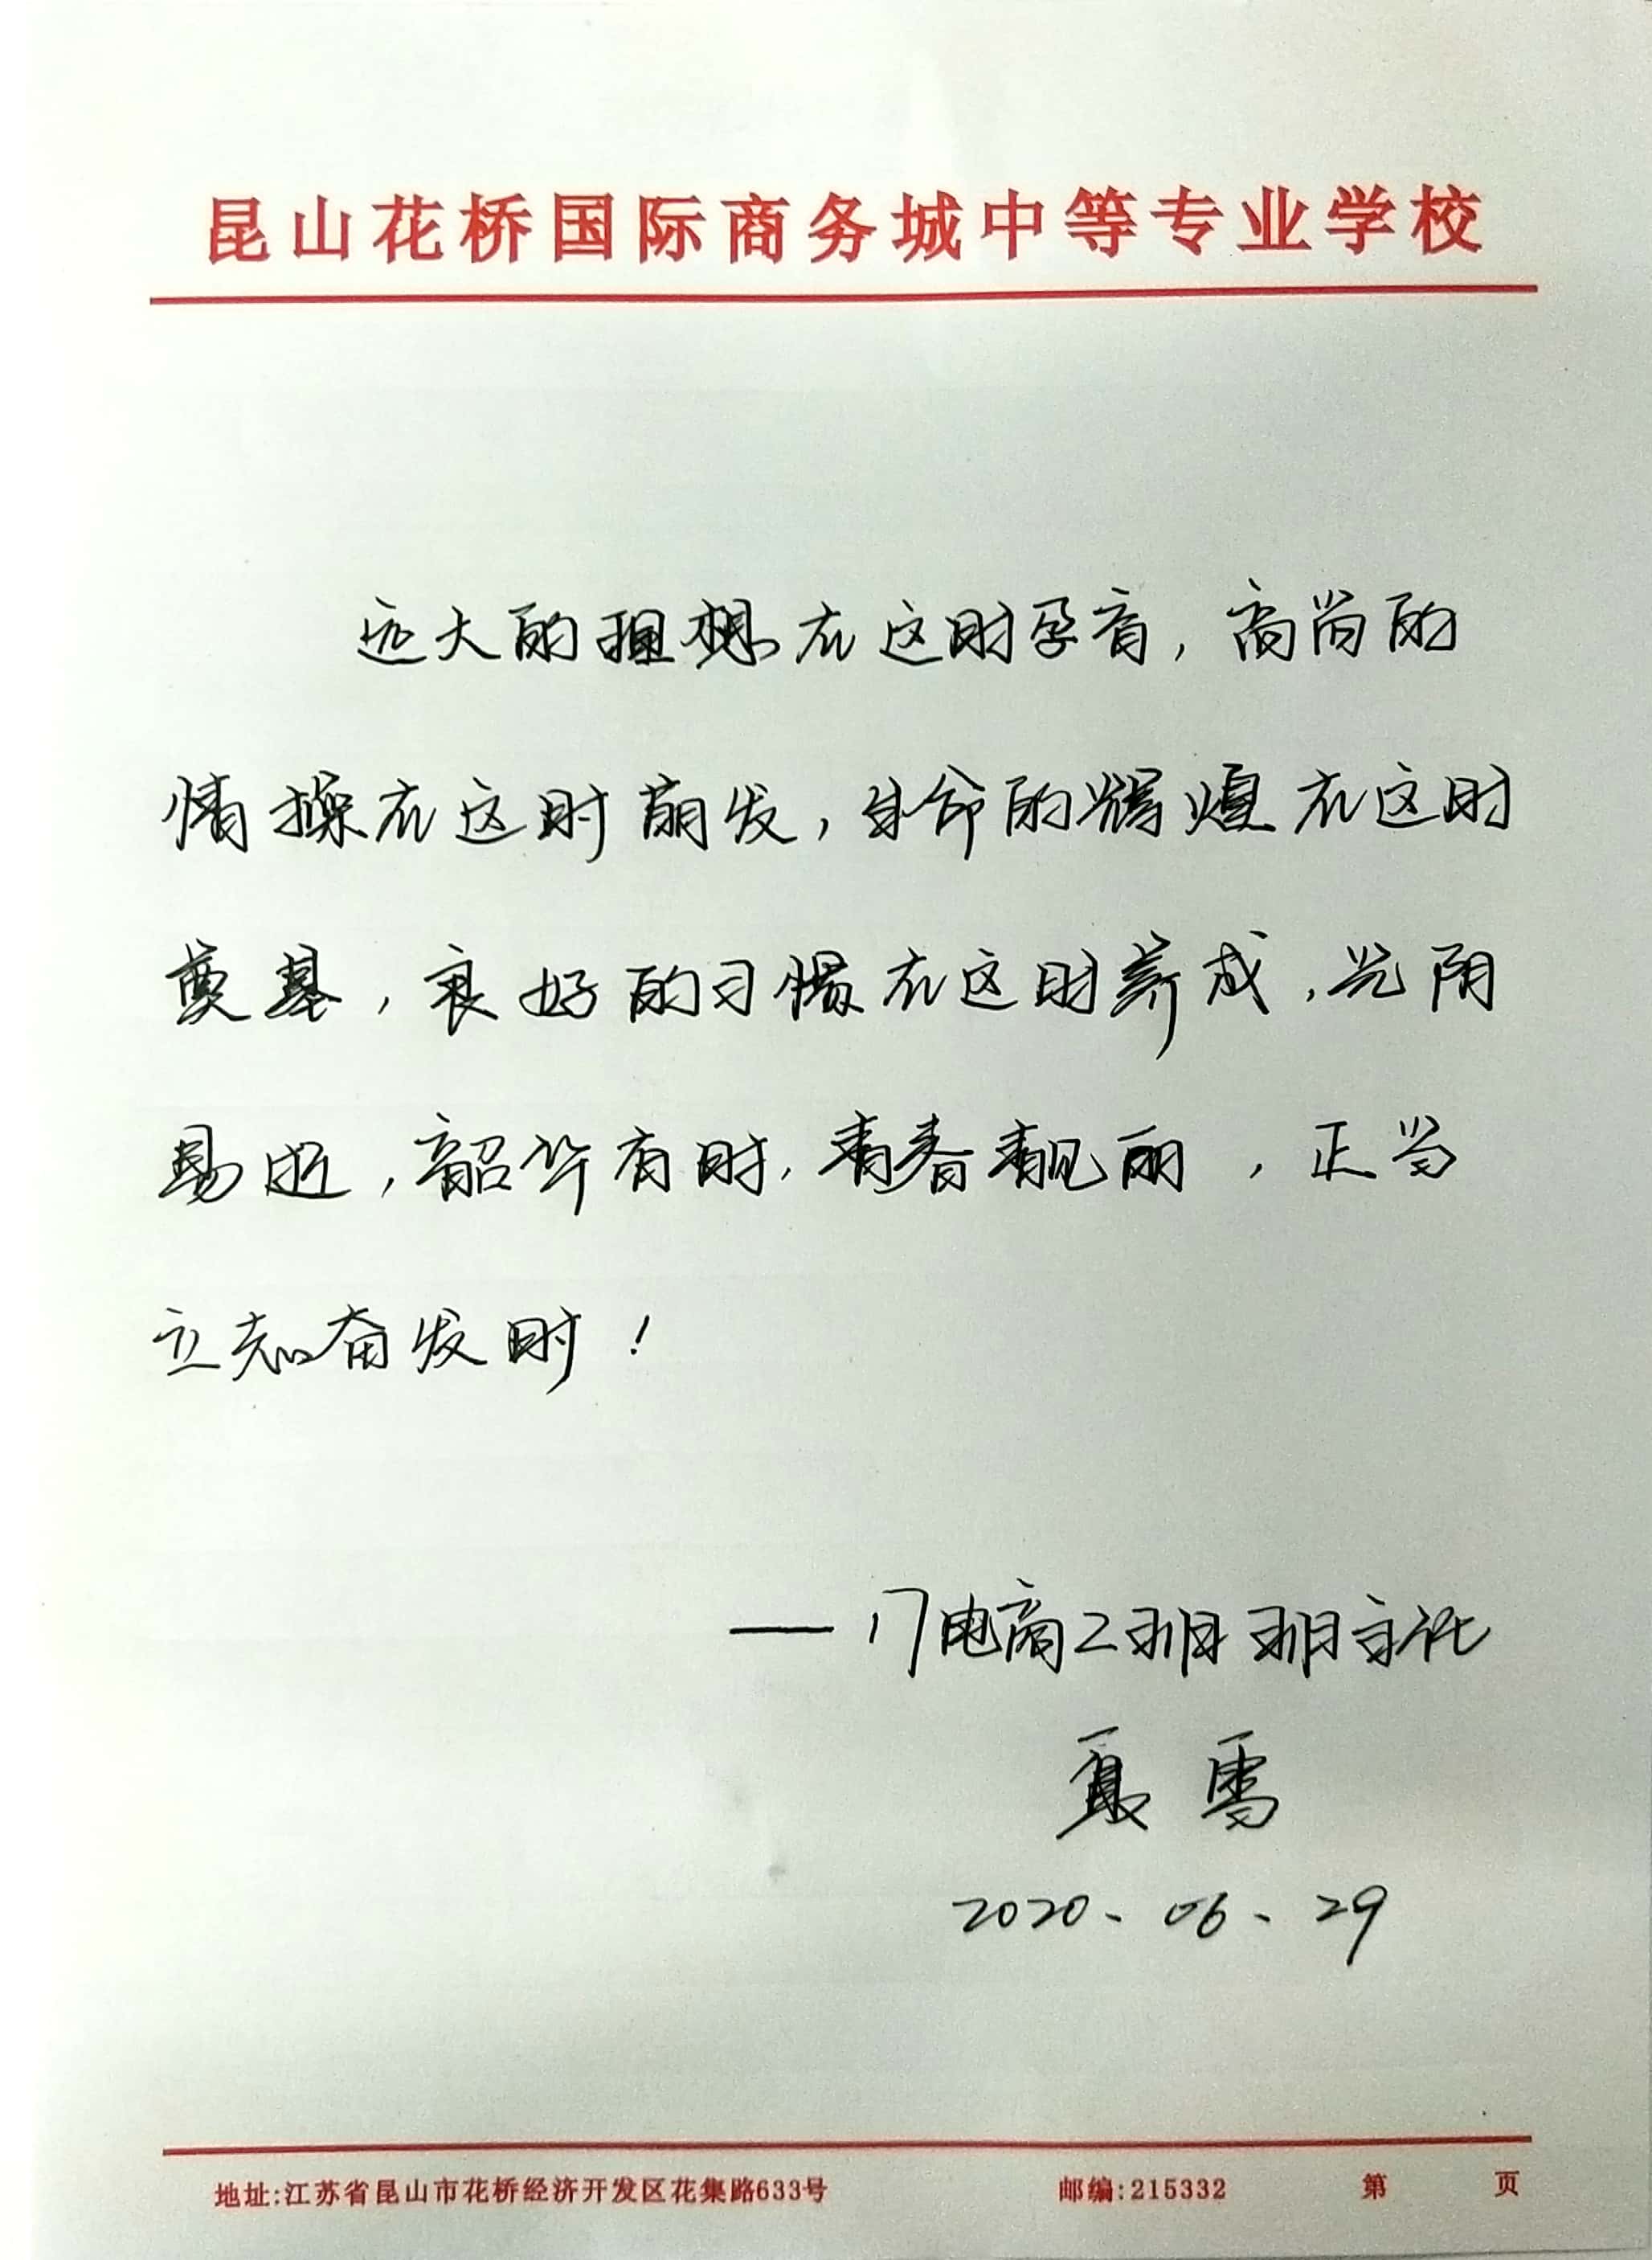 昆山花桥国际商务城中等专业学校
远大的理想在这时孕育,高尚的
情操在这时萌发,生命的辉煌在这时
奠基,良好的习惯在这时养成,光阴
易逝,韶华有时,青春靓丽,正当
立志奋发时!
—17电商2班班主任
夏雪
2020、06、29
地址:江苏省昆山市花桥经济开发区花集路633号 邮编:215332 第 页